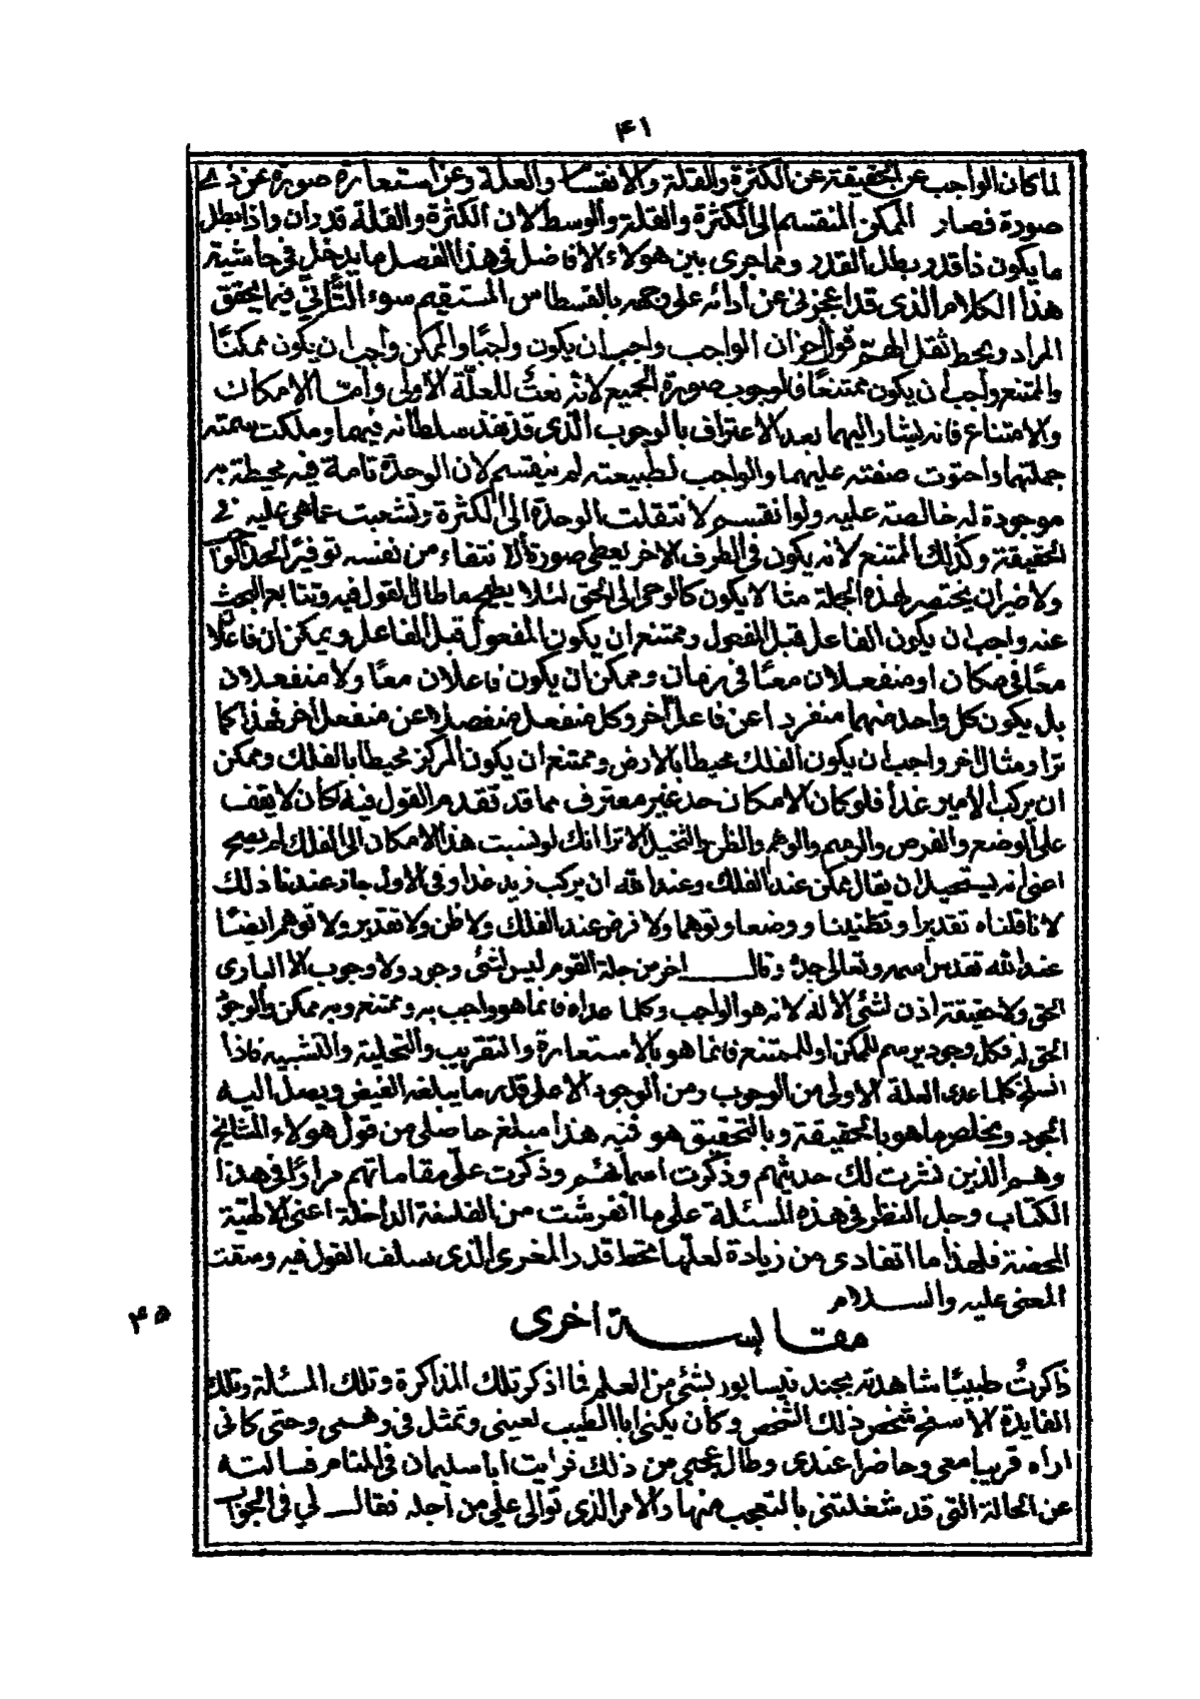 ۴۱
لما كان الواجب عن الحقيقة عن الكثرة والقلة والانقسام والعلة وعن استعارة صورة عن ذى
صورة فصار الممكن المنقسم الى الكثرة والقلة والوسط لان الكثرة والقلة قدران واذا بطل
ما يكون ذا قدر بطل القدر ومما جرى بين هولاء الافاضل فى هذا الفصل ما يدخل فى حاشية
هذا الكلام الذى قد اعجزنى عن ادائه على وجهه بالقسطاس المستقيم سوء التأنّى فيما يحقق
المراد ويحط ثقل الهمّ قول اخر ان الواجب واجب ان يكون واجبًا والممكن واجب ان يكون ممكنًا
والممتنع واجب ان يكون ممتنعًا فالوجوب صورة الجميع لانه نعتٌ للعلّة الاولى وامّا الامكان
والامتناع فانه يشار اليهما بعد الاعتراف بالوجوب الذى قد نفذ سلطانه فيهما وملكت سمته
جملتهما واحتوت صفته عليهما والواجب لطبيعته لم ينقسم لان الوحدة تامة فيه محيطة به
موجودة له خالصة عليه ولو انقسم لانتقلت الوحدة الى الكثرة وتشعبت عما هى عليه فى
الحقيقة وكذلك الممتنع لانه يكون فى الطرف الاخر يعطى صورة الانتفاء من نفسه توفيرًا
ولا ضير ان يختصر لهذه الجملة مثالا يكون كالوحى الى الحق لئلا يطيح ما طال القول فيه وتتابع البحث
عنه واجب ان يكون الفاعل قبل المفعول وممتنع ان يكون المفعول قبل الفاعل ويمكن ان فاعلان
معًا فى مكان او منفعلان معًا فى زمان وممكن ان يكون فاعلان معًا ولا منفعلان
بل يكون كل واحد منهما منفردا عن فاعل اخر وكل منفعل منفصلا عن منفعل اخر فهذا كما
ترا ومثال اخر واجب ان يكون الفلك محيطا بالارض وممتنع ان يكون المركز محيطا بالفلك وممكن
ان يركب الامير غدا فلو كان الامكان حد غير معترف مما قد تقدم القول فيه كان لا يقف
على الوضع والفرض والرسم والوهم والظن والتخيل الا ترا انك لو نسبت هذا الامكان الى الفلك لم يصح
اعنى انه يستحيل ان يقال ممكن عند الفلك وعند الله ان يركب زيد غدا وفى الاول جاز عندنا ذلك
لانا قلناه تقديرا وتظنينا ووضعا وتوهما ولا فرض عند الفلك ولا ظن ولا تقدير ولا توهم ايضًا
عند الله تقدس اسمه وتعالى جده وقال اخر من جلة القوم ليس لشئ وجود ولا وجوب الا البارى
الحق ولا حقيقة اذن لشئ الا له لانه هو الواجب وكلما عداه فانما هو واجب به وممتنع وبه ممكن والوجود
الحق له فكل وجود يرسم للممكن او للممتنع فانما هو بالاستعارة والتقريب والتحلية والتشبيه فاذا
انسلخ كلما عدى العلة الاولى من الوجوب ومن الوجود الا على قدر ما يبلغه الفيض ويصل اليه
الجود ويخلص ما هو بالحقيقة وبالتحقيق هو فيه هذا مبلغ حاصلى من قول هولاء المشايخ
وهم الذين نثرت لك حديثهم وذكرت اسماءهم وذكرت علىّ مقاماتهم مرارًا فى هذا
الكتاب وجل النظر فى هذه المسئلة على ما انفرشت من الفلسفة الداخلة اعنى الالهيّة
المحضة فلهذا ما اتفادى من زيادة لعلّها تحط قدر المغزى الذى سلف القول فيه ومقت
المعنى عليه والسلام
۴۵
مقابسة اخرى
ذاكرتُ طبيبًا شاهدته بجند نيسابور بشئ من العلم فما اذكر تلك المذاكرة وتلك المسئلة وتلك
الفايدة الا سنح شخص ذلك الشخص وكان يكنى ابا الطيب لعينى وتمثل فى وهمى وحتى كانى
اراه قريبا معى وحاضرا عندى وطال عجبى من ذلك فرايت ابا سليمان فى المنام فسالته
عن الحالة التى قد شغلتنى بالتعجب منها والامر الذى توالى على من اجله فقال لي فى الجواب